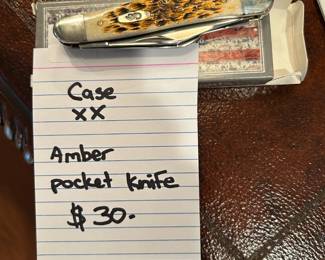 Case
XX
Amber
pocket knife
$30.